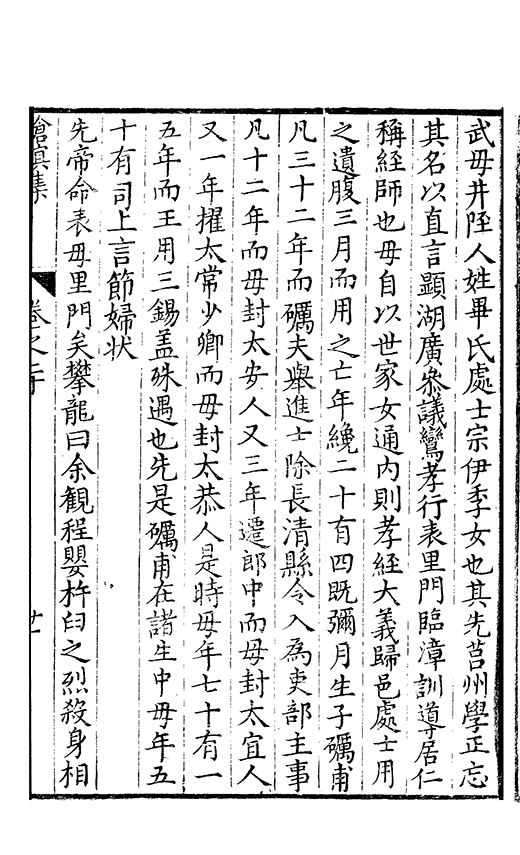 武毋井陘人姓畢氏處士宗伊季女也其先莒州學正忘
其名以直言顯湖廣叅議鸞孝行表里門臨漳訓導居仁
稱經師也毋自以世家女通内則孝經大義歸邑處士用
之遺腹三月而用之亡年纔二十有四既彌月生子礪甫
凡三十二年而礪夫舉進士除長清縣令入為吏部主事
凡十二年而毋封太安人又三年遷郎中而毋封太宜人
又一年擢太常少卿而毋封太恭人是時毋年七十有一
五年而王用三錫盖殊遇也先是礪甫在諸生中毋年五
十有司上言節婦狀
先帝命表毋里門矣攀龍曰余観程嬰杵臼之烈殺身相
滄溟集
卷之二十
廿一